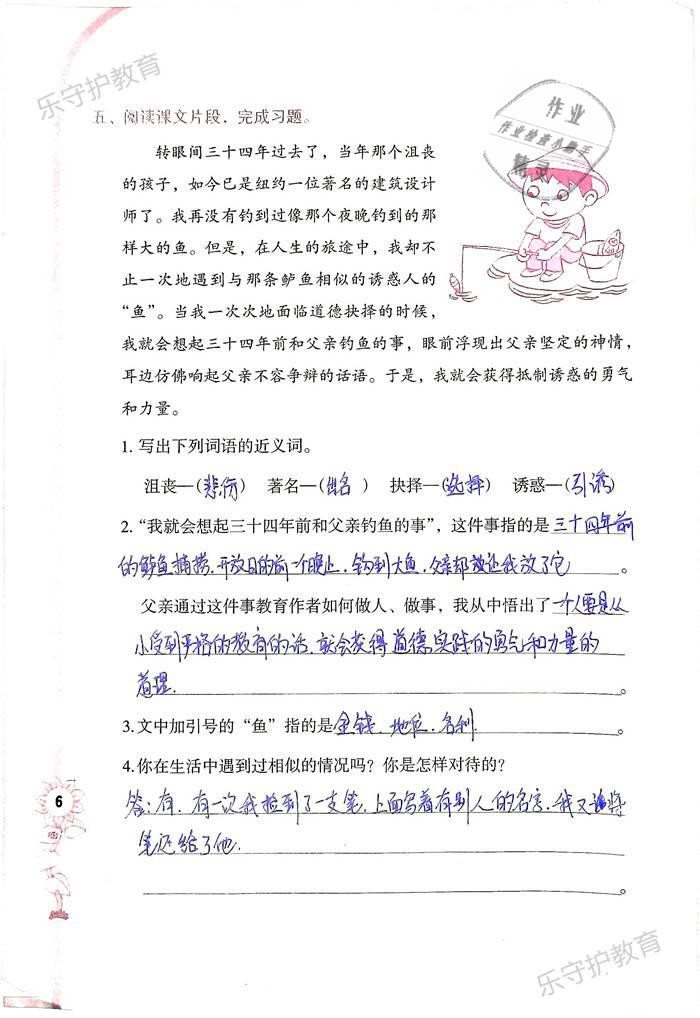 乐守护教育
五、阅读课文片段，完成习题。
作业
作业检查小助手
精灵
转眼间三十四年过去了，当年那个沮丧
的孩子，如今已是纽约一位著名的建筑设计
师了。我再没有钓到过像那个夜晚钓到的那
样大的鱼。但是，在人生的旅途中，我却不
止一次地遇到与那条鲈鱼相似的诱惑人的
“鱼”。当我一次次地面临道德抉择的时候，
我就会想起三十四年前和父亲钓鱼的事，眼前浮现出父亲坚定的神情，
耳边仿佛响起父亲不容争辩的话语。于是，我就会获得抵制诱惑的勇气
和力量。
1. 写出下列词语的近义词。
沮丧—(悲伤) 著名—(出名) 抉择—(选择) 诱惑—(引诱)
2. “我就会想起三十四年前和父亲钓鱼的事”，这件事指的是三十四年前
的鲈鱼捕捞.开放日的前一个晚上.钓到大鱼.父亲却让我放了它。
父亲通过这件事教育作者如何做人、做事，我从中悟出了一个人要是从
小受到严格的教育的话.就会获得道德实践的勇气和力量的
道理.。
3. 文中加引号的“鱼”指的是金钱.地位.名利.。
4. 你在生活中遇到过相似的情况吗？你是怎样对待的？
答:有.有一次我捡到了一支笔.上面写着有别人的名字.我又将
笔还给了他.
。
6
乐守护教育